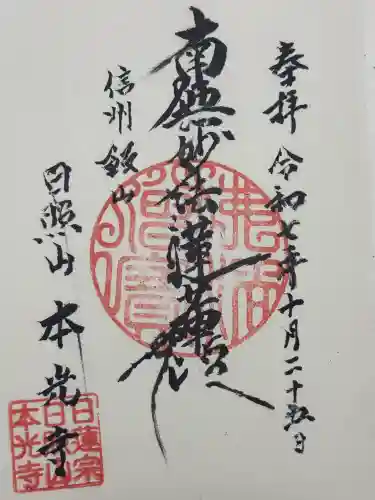 奉拝 令和七年十月二十五日
南無妙法蓮華経
信州飯山
日照山 本光寺
日蓮宗
日照山
本光寺